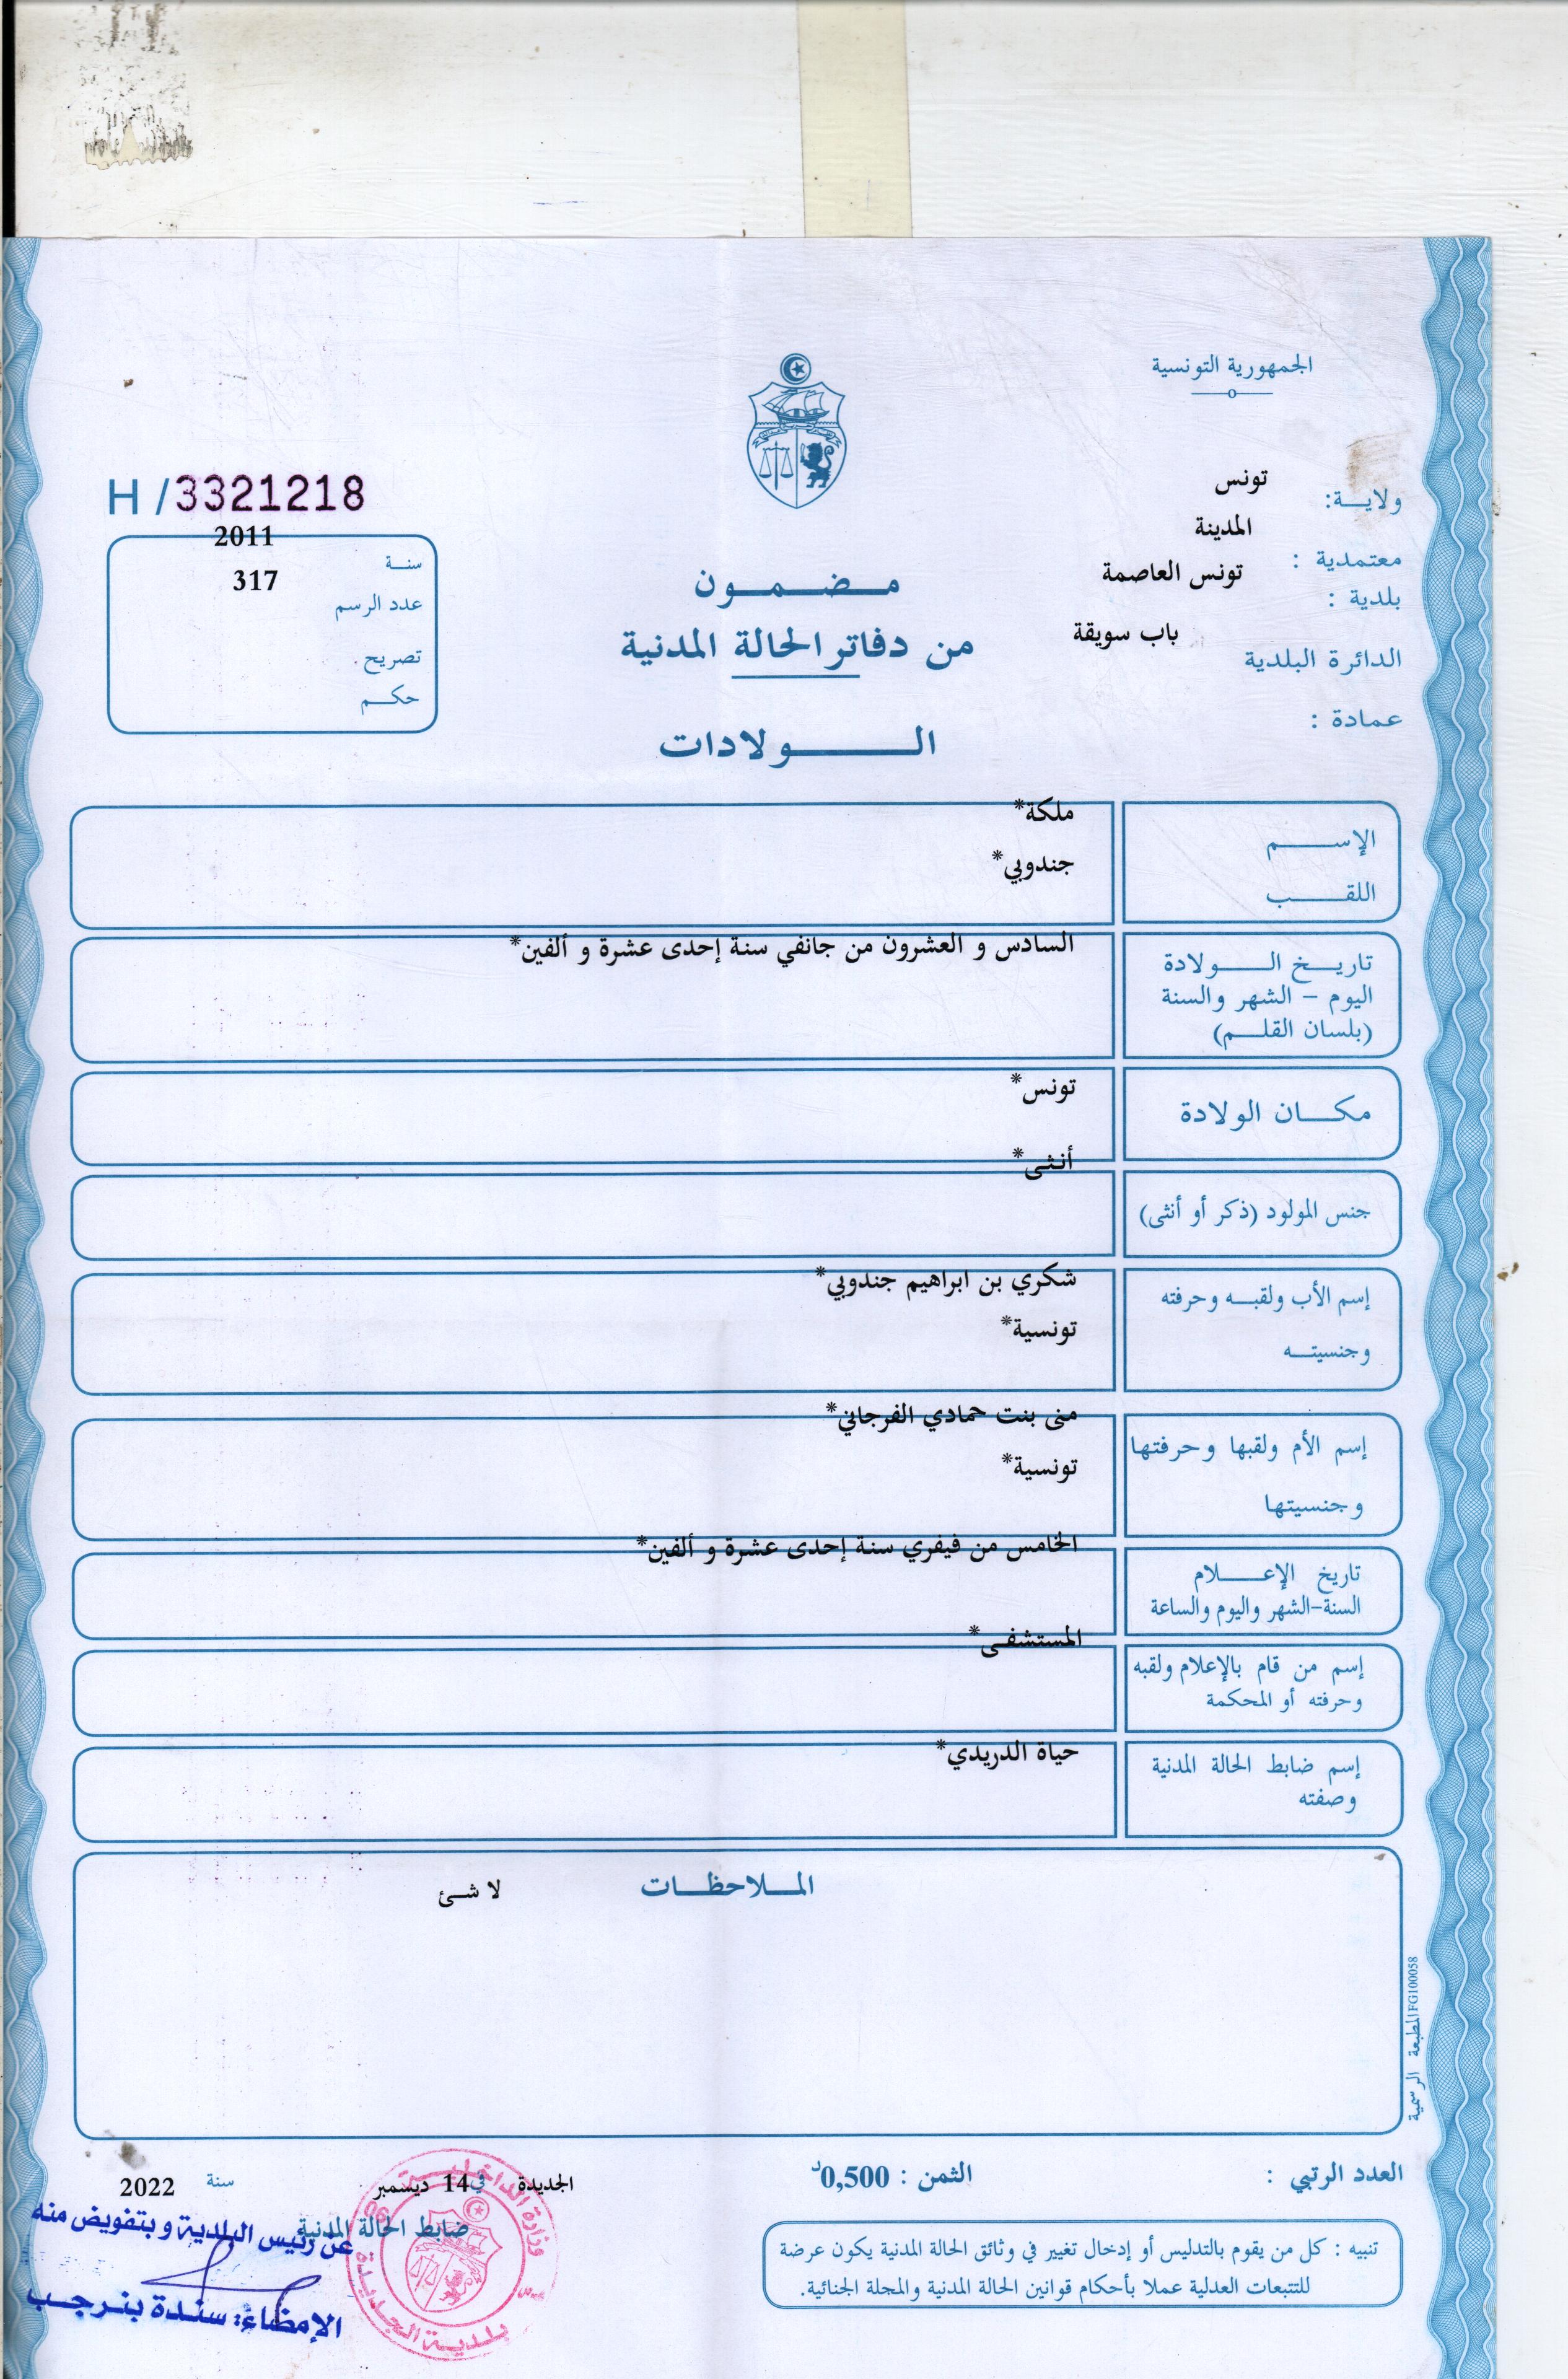 الجمهورية التونسية
ولايـــة: تونس
معتمدية : المدينة
بلدية : تونس العاصمة
الدائرة البلدية باب سويقة
عمادة :
H/3321218
سنـــة 2011
عدد الرسم 317
تصريح .
حكـــم
مـــضـــمـــون
من دفاتر الحالة المدنية
الـــــولادات
الإســـــم ملكة*
اللقـــــب جندوبي*
تاريـــخ الـــــولادة السادس و العشرون من جانفي سنة إحدى عشرة و ألفين*
اليوم - الشهر والسنة
(بلسان القلـــم)
مكـــان الولادة تونس*
جنس المولود (ذكر أو أنثى) أنثى*
إسم الأب ولقبـــه وحرفته شكري بن ابراهيم جندوبي*
وجنسيتـــه تونسية*
إسم الأم ولقبها وحرفتها منى بنت حمادي الفرجاني*
وجنسيتها تونسية*
تاريخ الإعـــــلام الخامس من فيفري سنة إحدى عشرة و ألفين*
السنة-الشهر واليوم والساعة
إسم من قام بالإعلام ولقبه المستشفى*
وحرفته أو المحكمة
إسم ضابط الحالة المدنية حياة الدريدي*
وصفته
المـــلاحظـــات لا شئ
المطبعة الرسمية FG100058
العدد الرتبي :
الثمن : 0,500د
الجديدة في 14 ديسمبر سنة 2022
ضابط الحالة المدنية
عن رئيس البلدية و بتفويض منه
الإمضاء: سندة بنرجب
وزارة الداخلية
بلدية الجديدة
06
تنبيه : كل من يقوم بالتدليس أو إدخال تغيير في وثائق الحالة المدنية يكون عرضة
للتتبعات العدلية عملا بأحكام قوانين الحالة المدنية والمجلة الجنائية.